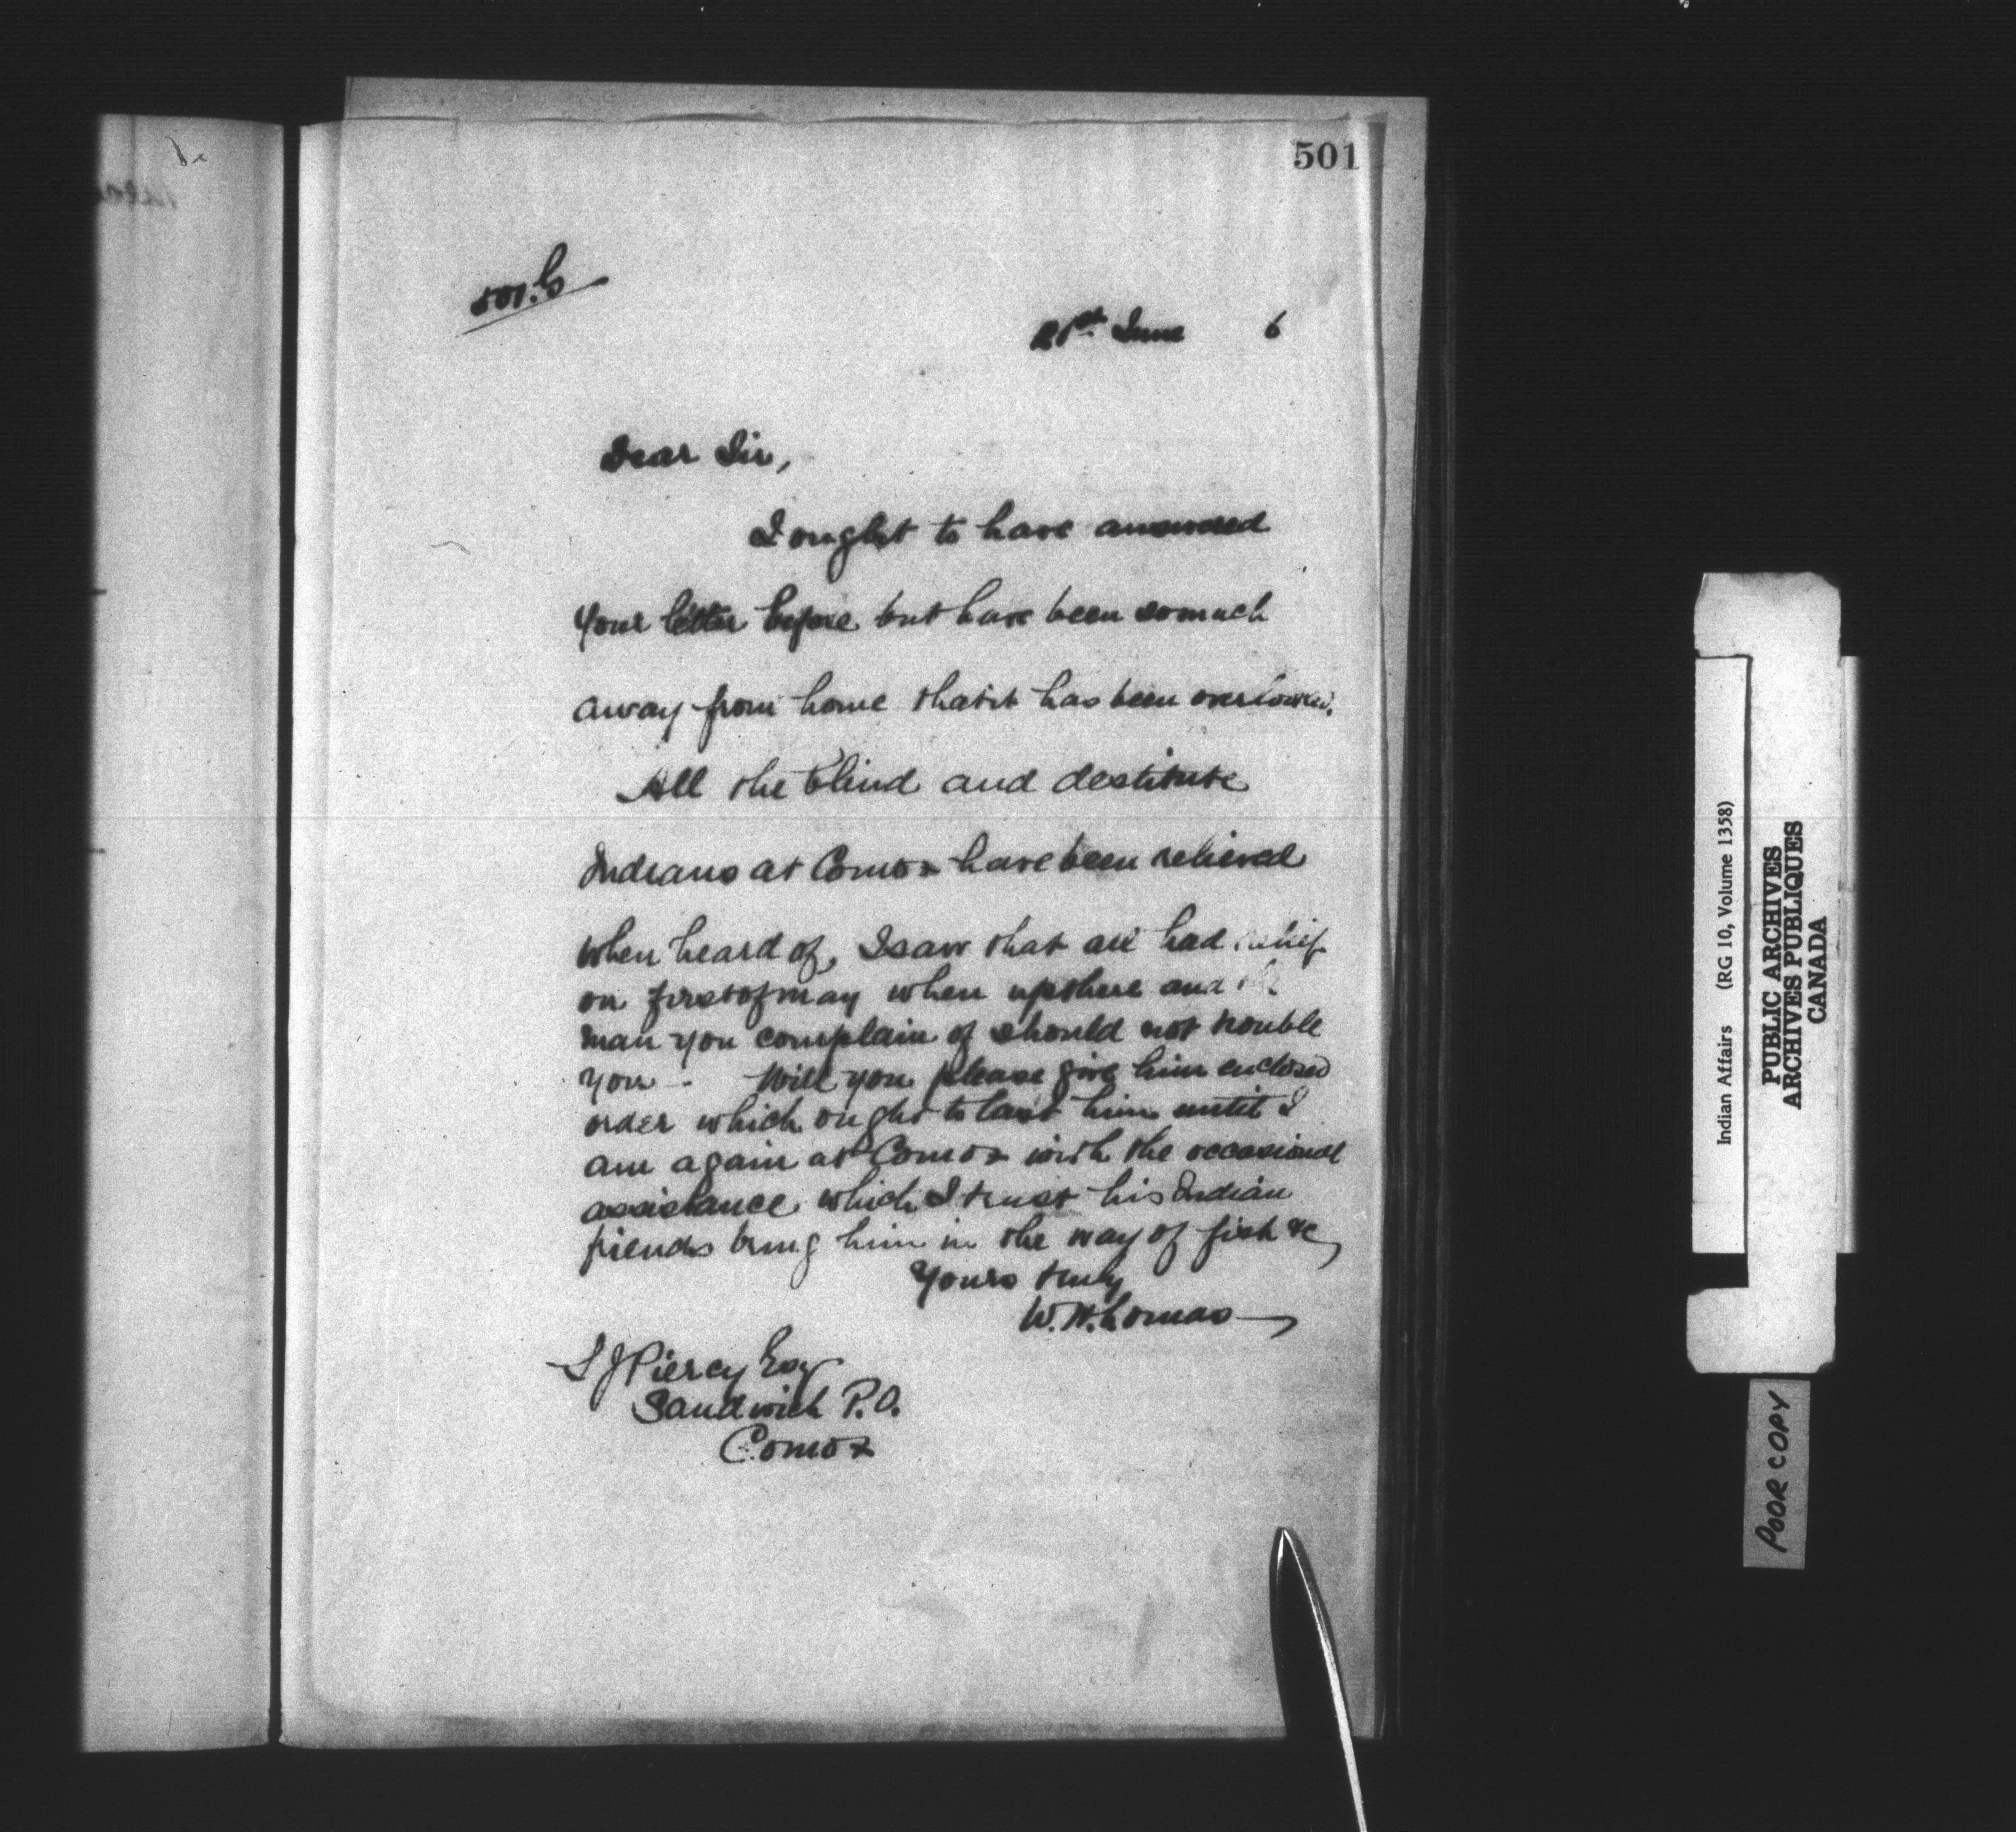 501
501.G
21st June 6
Dear Sir,
I ought to have answered
your letter before but have been so much
away from home that it has been overlooked.
All the blind and destitute
Indians at Comox have been relieved
when heard of, I saw that all had relief
on first of may when up there and the
man you complain of should not trouble
you - Will you please give him enclosed
order which ought to last him until I
am again at Comox with the occasional
assistance which I trust his Indian
friends bring him in the way of fish &c,
Yours truly
W. H. Lomas
S J Piercy Esq
Sandwick P.O.
Comox
Indian Affairs (RG 10, Volume 1358)
PUBLIC ARCHIVES
ARCHIVES PUBLIQUES
CANADA
POOR COPY